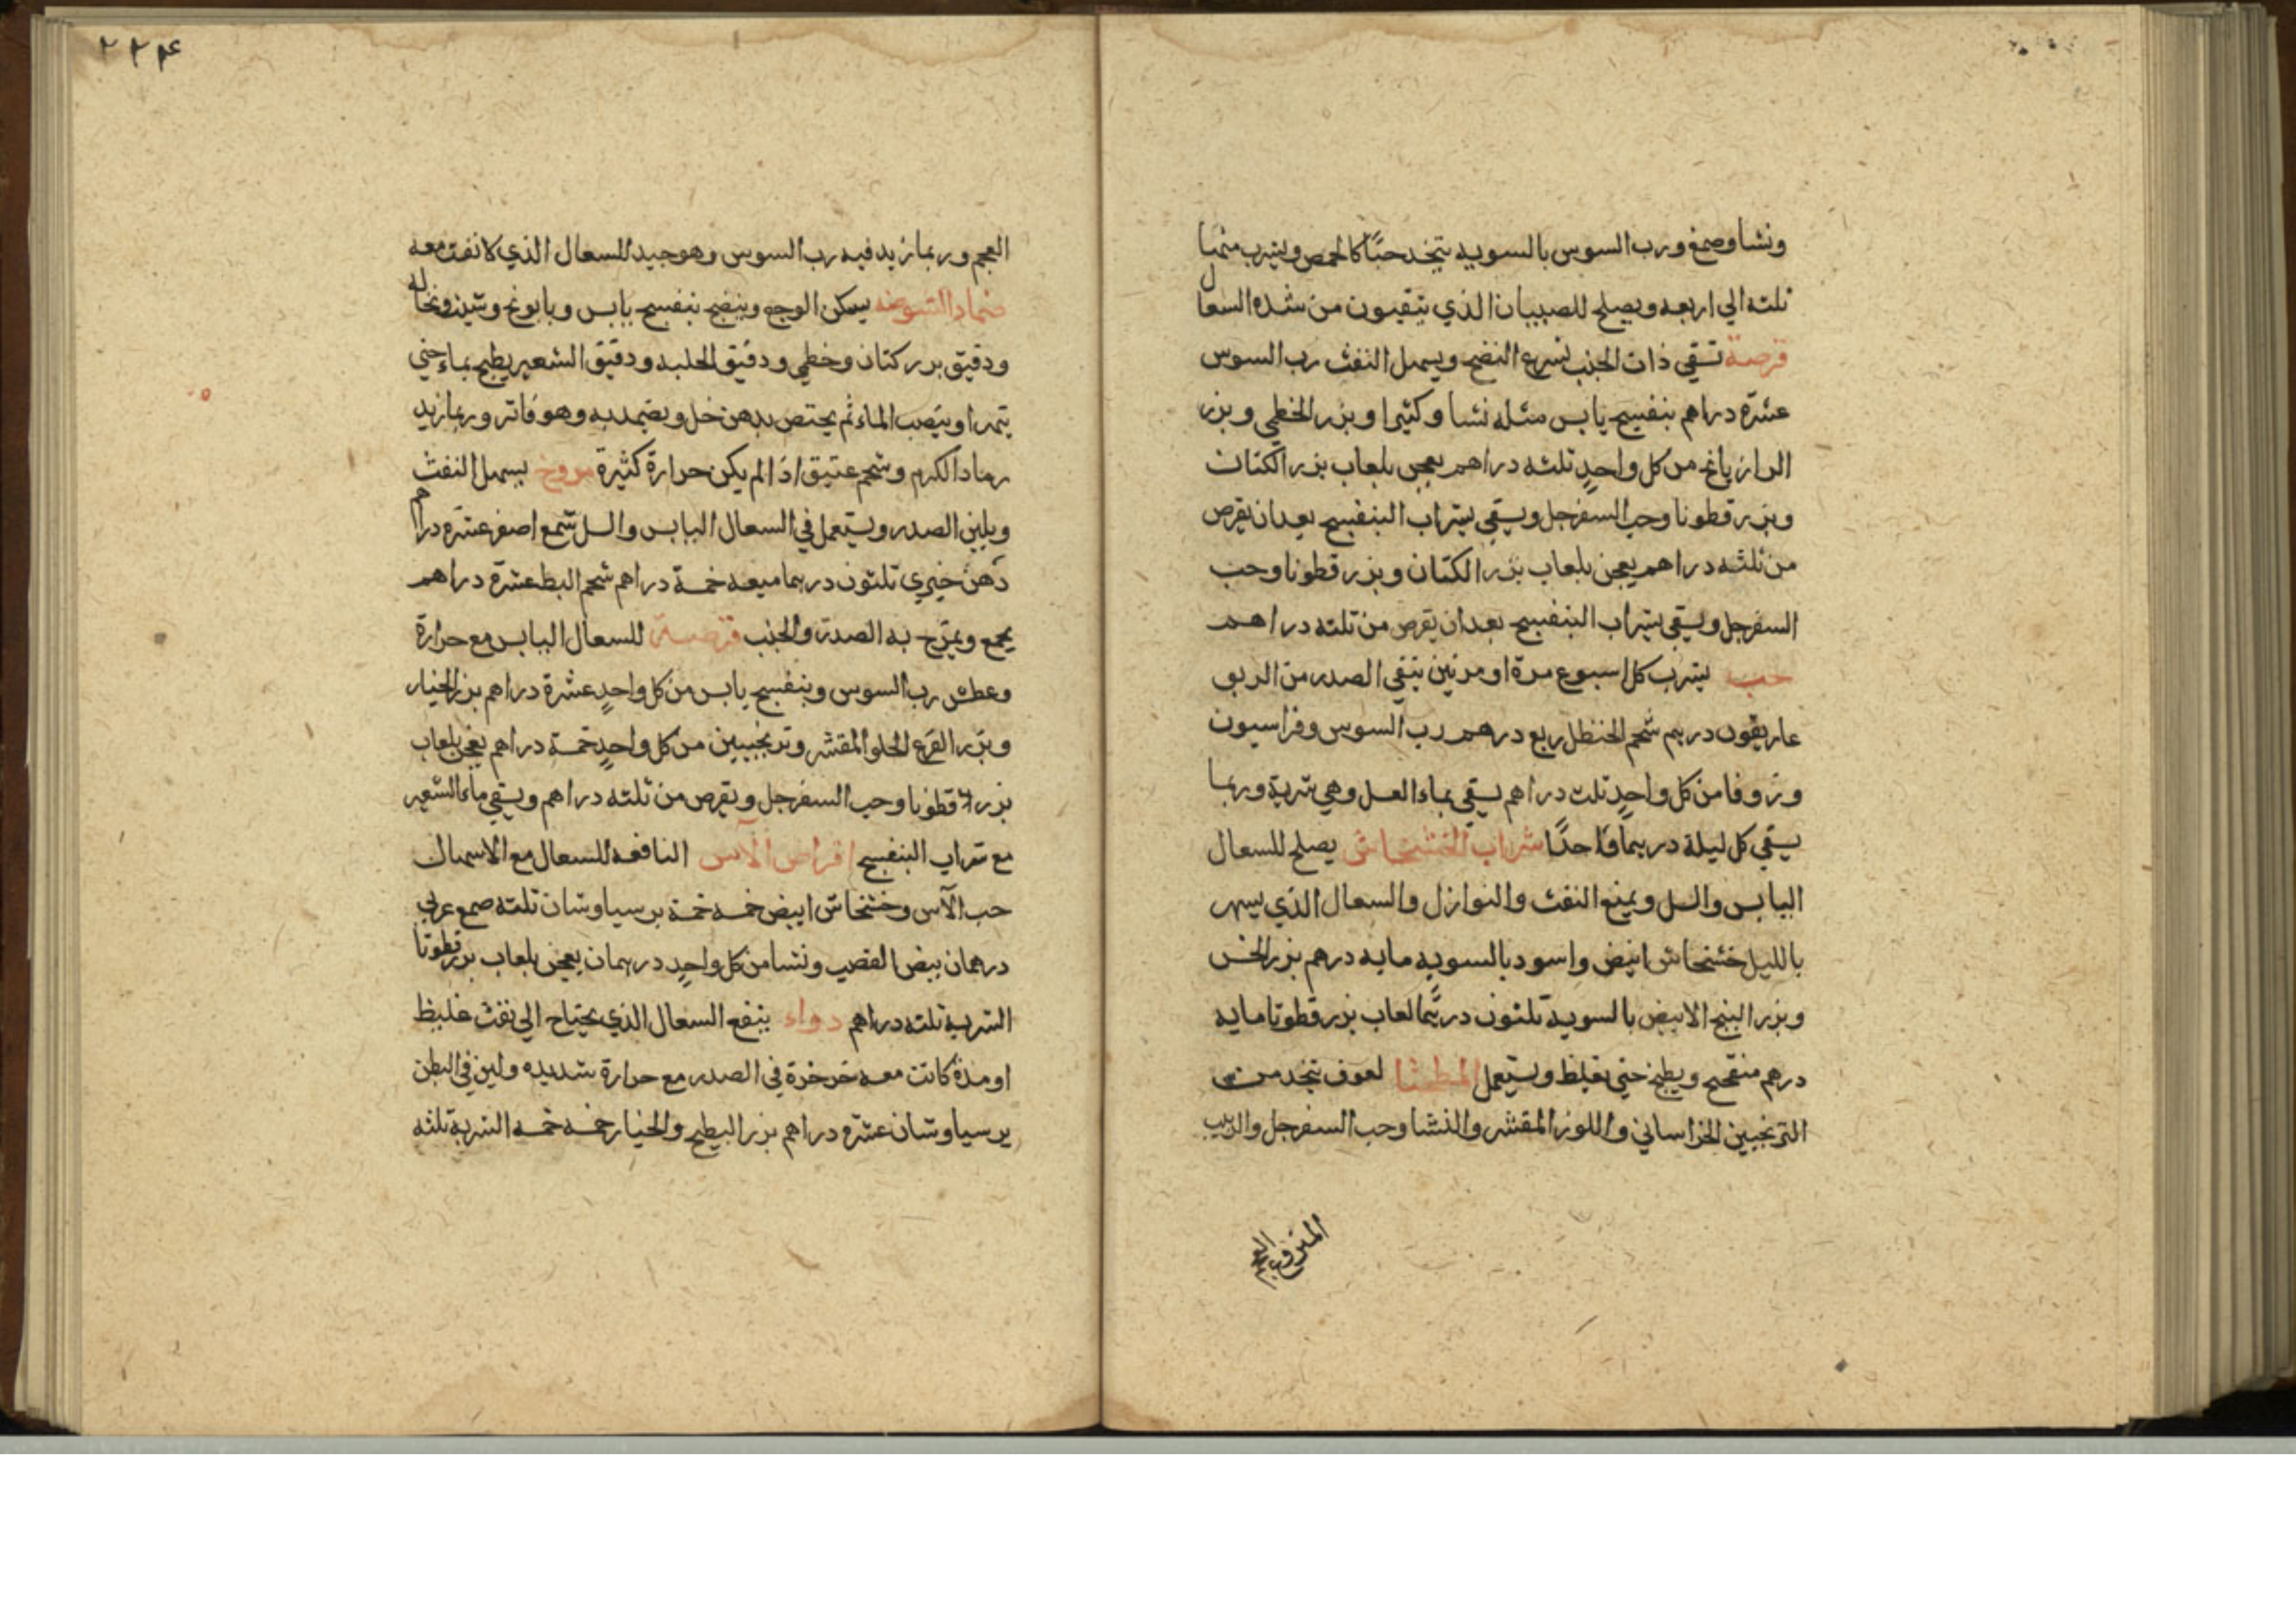 ونشا وصمغ ورب السوس بالسويه يتخذ حبًا كالحمص ويشرب منها
ثلثه الي اربعه ويصلح للصبيان الذي يتقيون من شده السعال
قرصة تسقي ذات الجنب لتسرع النضج ويسهل النفث رب السوس
عشرة دراهم بنفسج يابس مثله نشا وكثيرا وبزر الخطمي وبزر
الرازيانج من كل واحدٍ ثلثه دراهم يعجن بلعاب بزر الكتان
وبزر قطونا وحب السفرجل ويسقي بشراب البنفسج بعد ان يقرص
من ثلثه دراهم يعجن بلعاب بزر الكتان وبزر قطونا وحب
السفرجل ويسقي بشراب البنفسج بعد ان يقرص من ثلثه دراهم
حب يشرب كل اسبوع مرة او مرتين ينقي الصدر من الربو
غاريقون درهم شحم الحنظل ربع درهم رب السوس وفراسيون
وزوفا من كل واحدٍ ثلث دراهم يسقي بماء العسل وهي شربة وربما
يسقي كل ليلة درهما واحدًا شراب الخشخاش يصلح للسعال
اليابس والسل ويمنع النفث والنوازل والسعال الذي يسهر
بالليل خشخاش ابيض واسود بالسويه مايه درهم بزر الخس
وبزر البنج الابيض بالسوية ثلثون درهمًا لعاب بزر قطونا مايه
درهم منقح ويطبخ حتي يغلظ ويستعمل المطشا لعوق يتخذ من
الترنجبين الخراساني واللوز المقشر والنشا وحب السفرجل والزبيب
المنزوع العجم
٢٢۴
العجم وربما زيد فيه رب السوس وهو جيد للسعال الذي لا نفث معه
ضماد الشوصه يسكن الوجع وينضج بنفسج يابس وبابونج وشبث ونخاله
ودقيق بزر كتان وخطمي ودقيق الحلبه ودقيق الشعير يطبخ بماء حتي
يتهرا ويصب الماء ثم يحتص بدهن خل ويضمد به وهو فاتر وربما زيد
رماد الكرم وشحم عتيق اذا لم يكن حرارة كثيرة مروخ يسهل النفث
ويلين الصدر ويستعمل في السعال اليابس والسل شمع اصفر عشره دراهم
دهن خيري ثلثون درهما ميعه خمسة دراهم شحم البط عشرة دراهم
يجمع ويمرخ به الصدر والجنب قرصة للسعال اليابس مع حرارة
وعطش رب السوس وبنفسج يابس من كل واحدٍ عشرة دراهم بزر الخيار
وبزر القرع الحلو المقشر وترنجبين من كل واحدٍ خمسة دراهم يعجن بلعاب
بزر قطونا وحب السفرجل ويقرص من ثلثه دراهم ويسقي ماء الشعير
مع شراب البنفسج اقراص الآس النافعه للسعال مع الاسهال
حب الآس وخشخاش ابيض خمسه خمسة برسياوشان ثلثه صمغ عربي
درهمان بيض القصب ونشا من كل واحدٍ درهمان يعجن بلعاب بزر قطونا
الشربة ثلثه دراهم دواء ينفع السعال الذي يحتاج الي نفث غليظ
او مدة كانت معه خرخرة في الصدر مع حرارة شديده ولين في البطن
برسياوشان عشره دراهم بزر البطيخ والخيار خمسه خمسه الشربة ثلثه